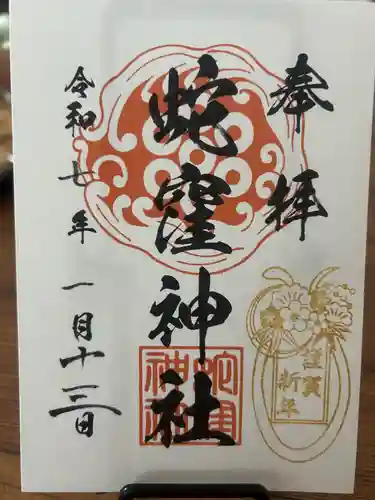 奉拝
蛇窪神社
令和七年一月十三日
謹賀
新年